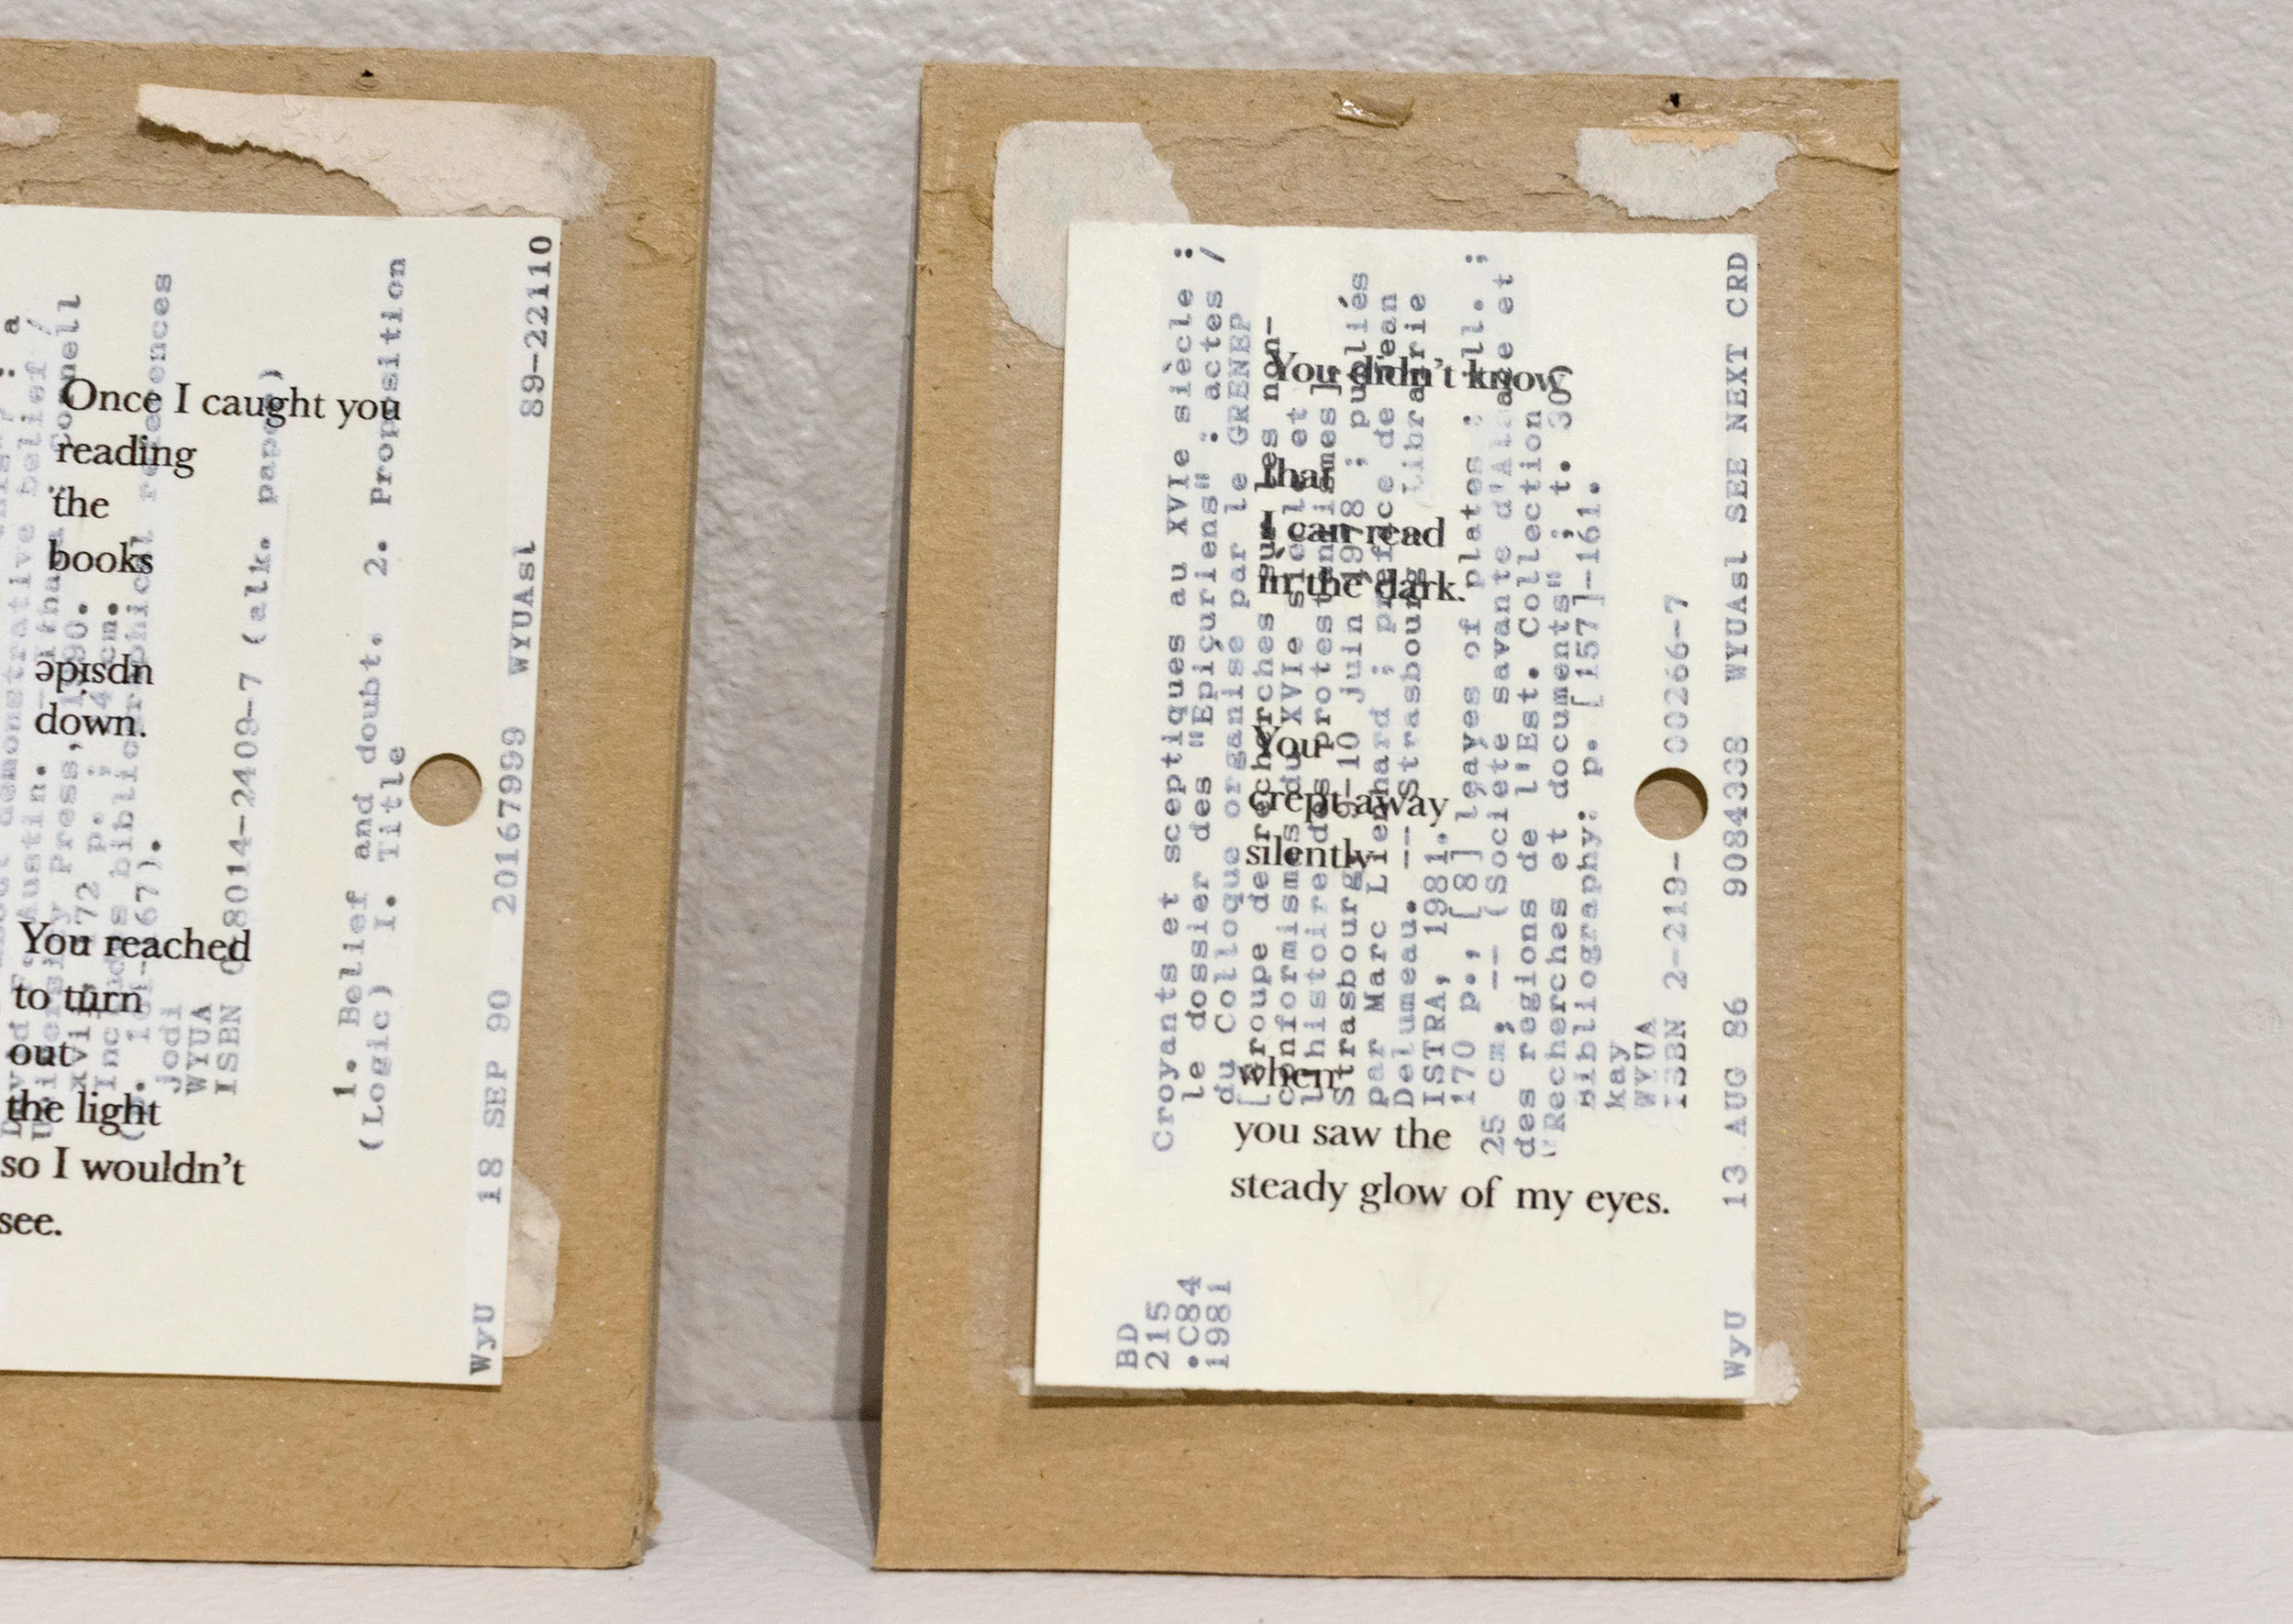 Once I caught you
reading
the
books
ǝpısdn
down.
You reached
to turn
out
the light
so I wouldn't
see.
demonstrative belief /
Austin.
Press, 1990.
172 p. ; cm.
bibliographical references
jodi
WYUA
ISBN 0-8014-2409-7 (alk. paper)
1. Belief and doubt. 2. Proposition
(Logic) I. Title
WyU 18 SEP 90 20167999 WYUAsl 89-22110
You didn't know
that
I can read
in the dark.
You
crept away
silently
when
you saw the
steady glow of my eyes.
BD
215
.C84
1981
Croyants et sceptiques au XVIe siècle :
le dossier des "Epicuriens" : actes /
du Colloque organise par le GRENEP
[Groupe de recherches sur les non-
conformismes du XVIe siecle et
l'histoire des protestantismes]
Strasbourg, 9-10 juin 1978 ; publiés
par Marc Lienhard ; preface de Jean
Delumeau. -- Strasbourg : Librairie
ISTRA, 1981.
170 p., [8] leaves of plates : ill. ;
25 cm. -- (Societe savante d'Alsace et
des regions de l'Est. Collection
"Recherches et documents" ; t. 30)
Bibliography: p. [157]-161.
kay
WYUA
ISBN 2-219-00266-7
WyU 13 AUG 86 9084338 WYUAsl SEE NEXT CRD